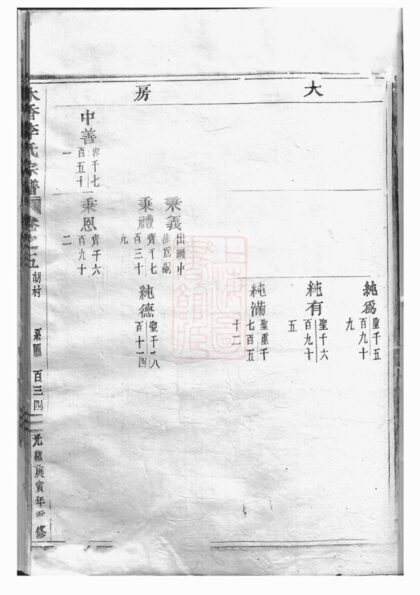 大房
純為
聖千五
百九十
九
純有
聖千六
百九十
五
純滿
聖重千
七百五
十二
秉義
出繼中
秉禮
千七
百三十
九
純德
聖千八
百十四
中善
千七
百五十
一
秉恩
千六
百九十
二
李氏宗譜
卷之五
胡村
系圖
百三四
光緒庚寅年重修